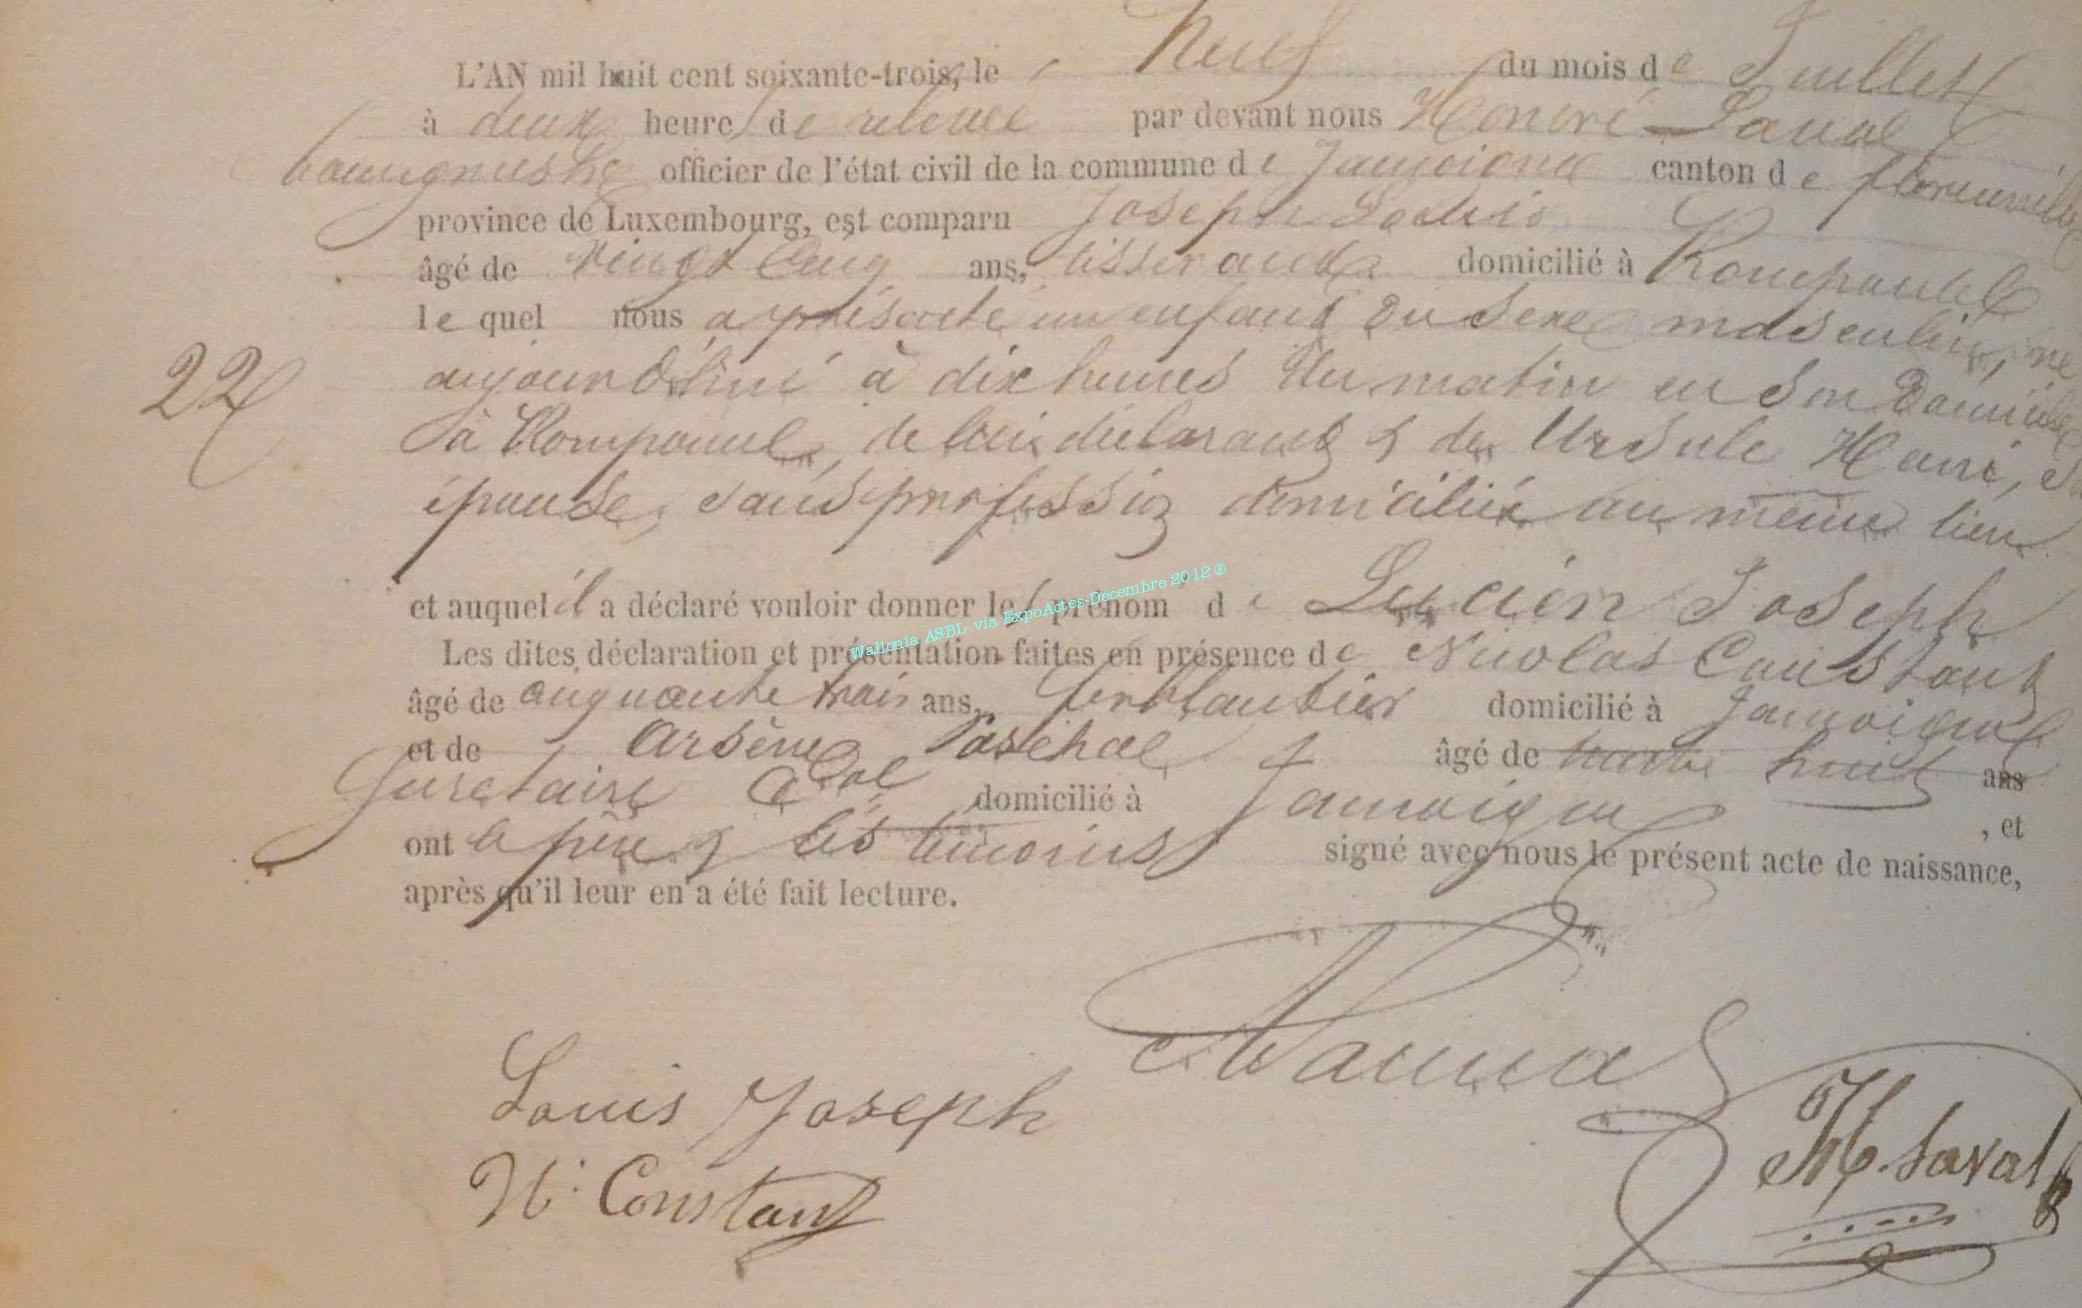 L'AN mil huit cent soixante-trois, le neuf du mois de Juillet
à deux heures de relevée par devant nous Honoré Laval
bourgmestre officier de l'état civil de la commune de Jamoigne canton de florenville
province de Luxembourg, est comparu Joseph Louis
âgé de vingt cinq ans, tisserand domicilié à Romponcel
le quel nous a présenté un enfant du sexe masculin, né
aujourd'hui à dix heures du matin en son domicile
à Romponcel, de lui déclarant & de Ursule Henri, sa
épouse, sans profession domiciliée au même lieu
et auquel il a déclaré vouloir donner les prénom de Lucien Joseph
Les dites déclaration et présentation faites en présence de Nicolas Constant
âgé de cinquante trois ans, ferblantier domicilié à Jamoigne
et de Arsène Paschal âgé de trente huit ans
Secretaire Cal domicilié à Jamoigne , et
ont le père & les témoins signé avec nous le présent acte de naissance,
après qu'il leur en a été fait lecture.
22
Wallonia ASBL via ExpoActes-Decembre 2012 ®
Louis Joseph
N. Constant
H. Laval